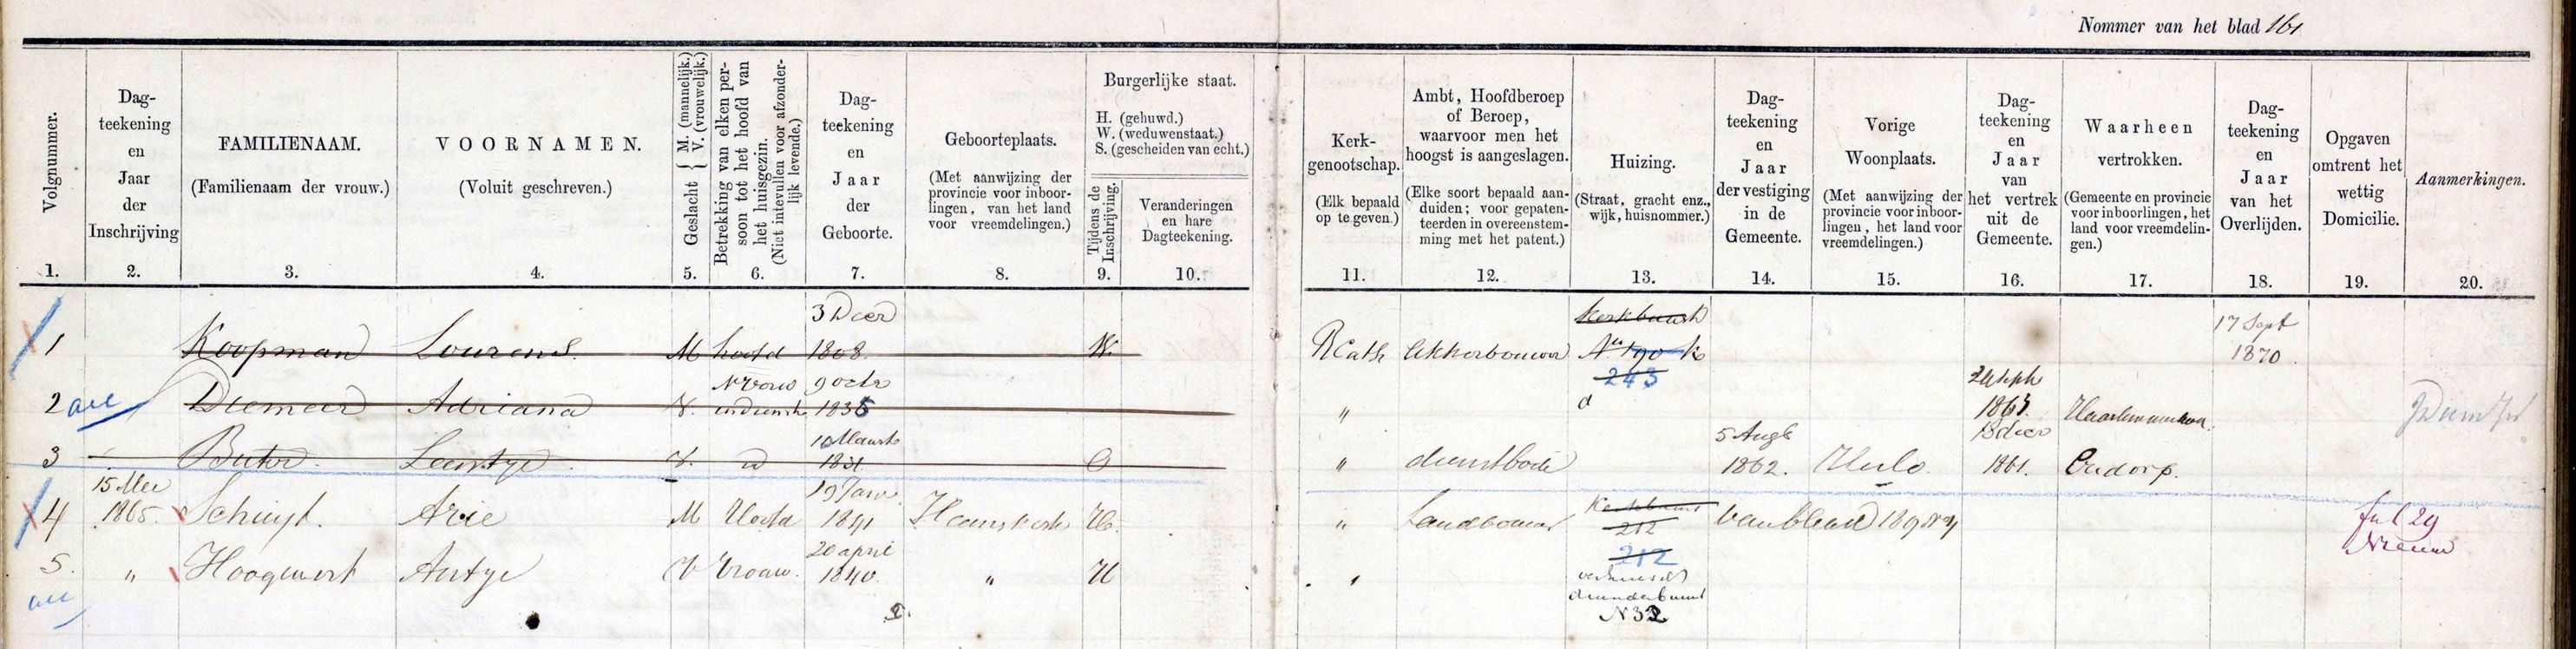 Nommer van het blad 161
Volgnummer.
Dag-
teekening
en
Jaar
der
Inschrijving
FAMILIENAAM.
(Familienaam der vrouw.)
VOORNAMEN.
(Voluit geschreven.)
Geslacht { M. (mannelijk.) V. (vrouwelijk.)
Betrekking van elken per-
soon tot het hoofd van
het huisgezin.
(Niet intevullen voor afzonder-
lijk levende.)
Dag-
teekening
en
Jaar
der
Geboorte.
Geboorteplaats.
(Met aanwijzing der
provincie voor inboor-
lingen, van het land
voor vreemdelingen.)
Burgerlijke staat.
H. (gehuwd.)
W. (weduwenstaat.)
S. (gescheiden van echt.)
Tijdens de
Inschrijving.
Veranderingen
en hare
Dagteekening.
Kerk-
genootschap.
(Elk bepaald
op te geven.)
Ambt, Hoofdberoep
of Beroep,
waarvoor men het
hoogst is aangeslagen.
(Elke soort bepaald aan-
duiden; voor gepaten-
teerden in overeenstem-
ming met het patent.)
Huizing.
(Straat, gracht enz.,
wijk, huisnommer.)
Dag-
teekening
en
Jaar
der vestiging
in de
Gemeente.
Vorige
Woonplaats.
(Met aanwijzing der
provincie voor inboor-
lingen, het land voor
vreemdelingen.)
Dag-
teekening
en
Jaar
van
het vertrek
uit de
Gemeente.
Waarheen
vertrokken.
(Gemeente en provincie
voor inboorlingen, het
land voor vreemdelin-
gen.)
Dag-
teekening
en
Jaar
van het
Overlijden.
Opgaven
omtrent het
wettig
Domicilie.
Aanmerkingen.
1. 2. 3. 4. 5. 6. 7. 8. 9. 10. 11. 12. 13. 14. 15. 16. 17. 18. 19. 20.
3 Decr Kerkbuurt 17 Sept
1 Koopman Lourens M hoofd 1808 W. RCath Akkerbouwer No 190 1870
243
9 octr
2 Adriana V. 1836 " d
5 Augs 13 decr
3 Buter Leentje V. d 1831 O " dienstbode 1862. Heilo 1861. Oudorp.
15 Mei 19 Janu Kerkbuurt
4 1865. Schuyt. Arie M Hoofd 1841 H. " Landbouwer 212 van blad 189 fol 29
20 april 212 Nieuw
5. " Hoogewerf Antje V Vrouw. 1840. " H "
N 32